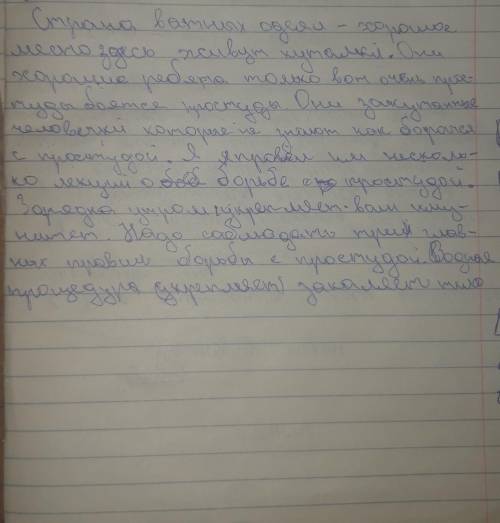 Страна ватных одеял - хорошое
место здесь живут куталки. Они
хорошие ребята только вот очень прос-
туды боятся простуды Они закутанные
человечки которые не знают как боротся
с простудой. Я провёл им несколь-
ко лекции о борьбе с простудой.
Зарядка утром укрепляет вам имму-
нитет. Надо соблюдать три глав-
ных правил борьбы с простудой. Водная
процедура (укрепляет) закаляет тело